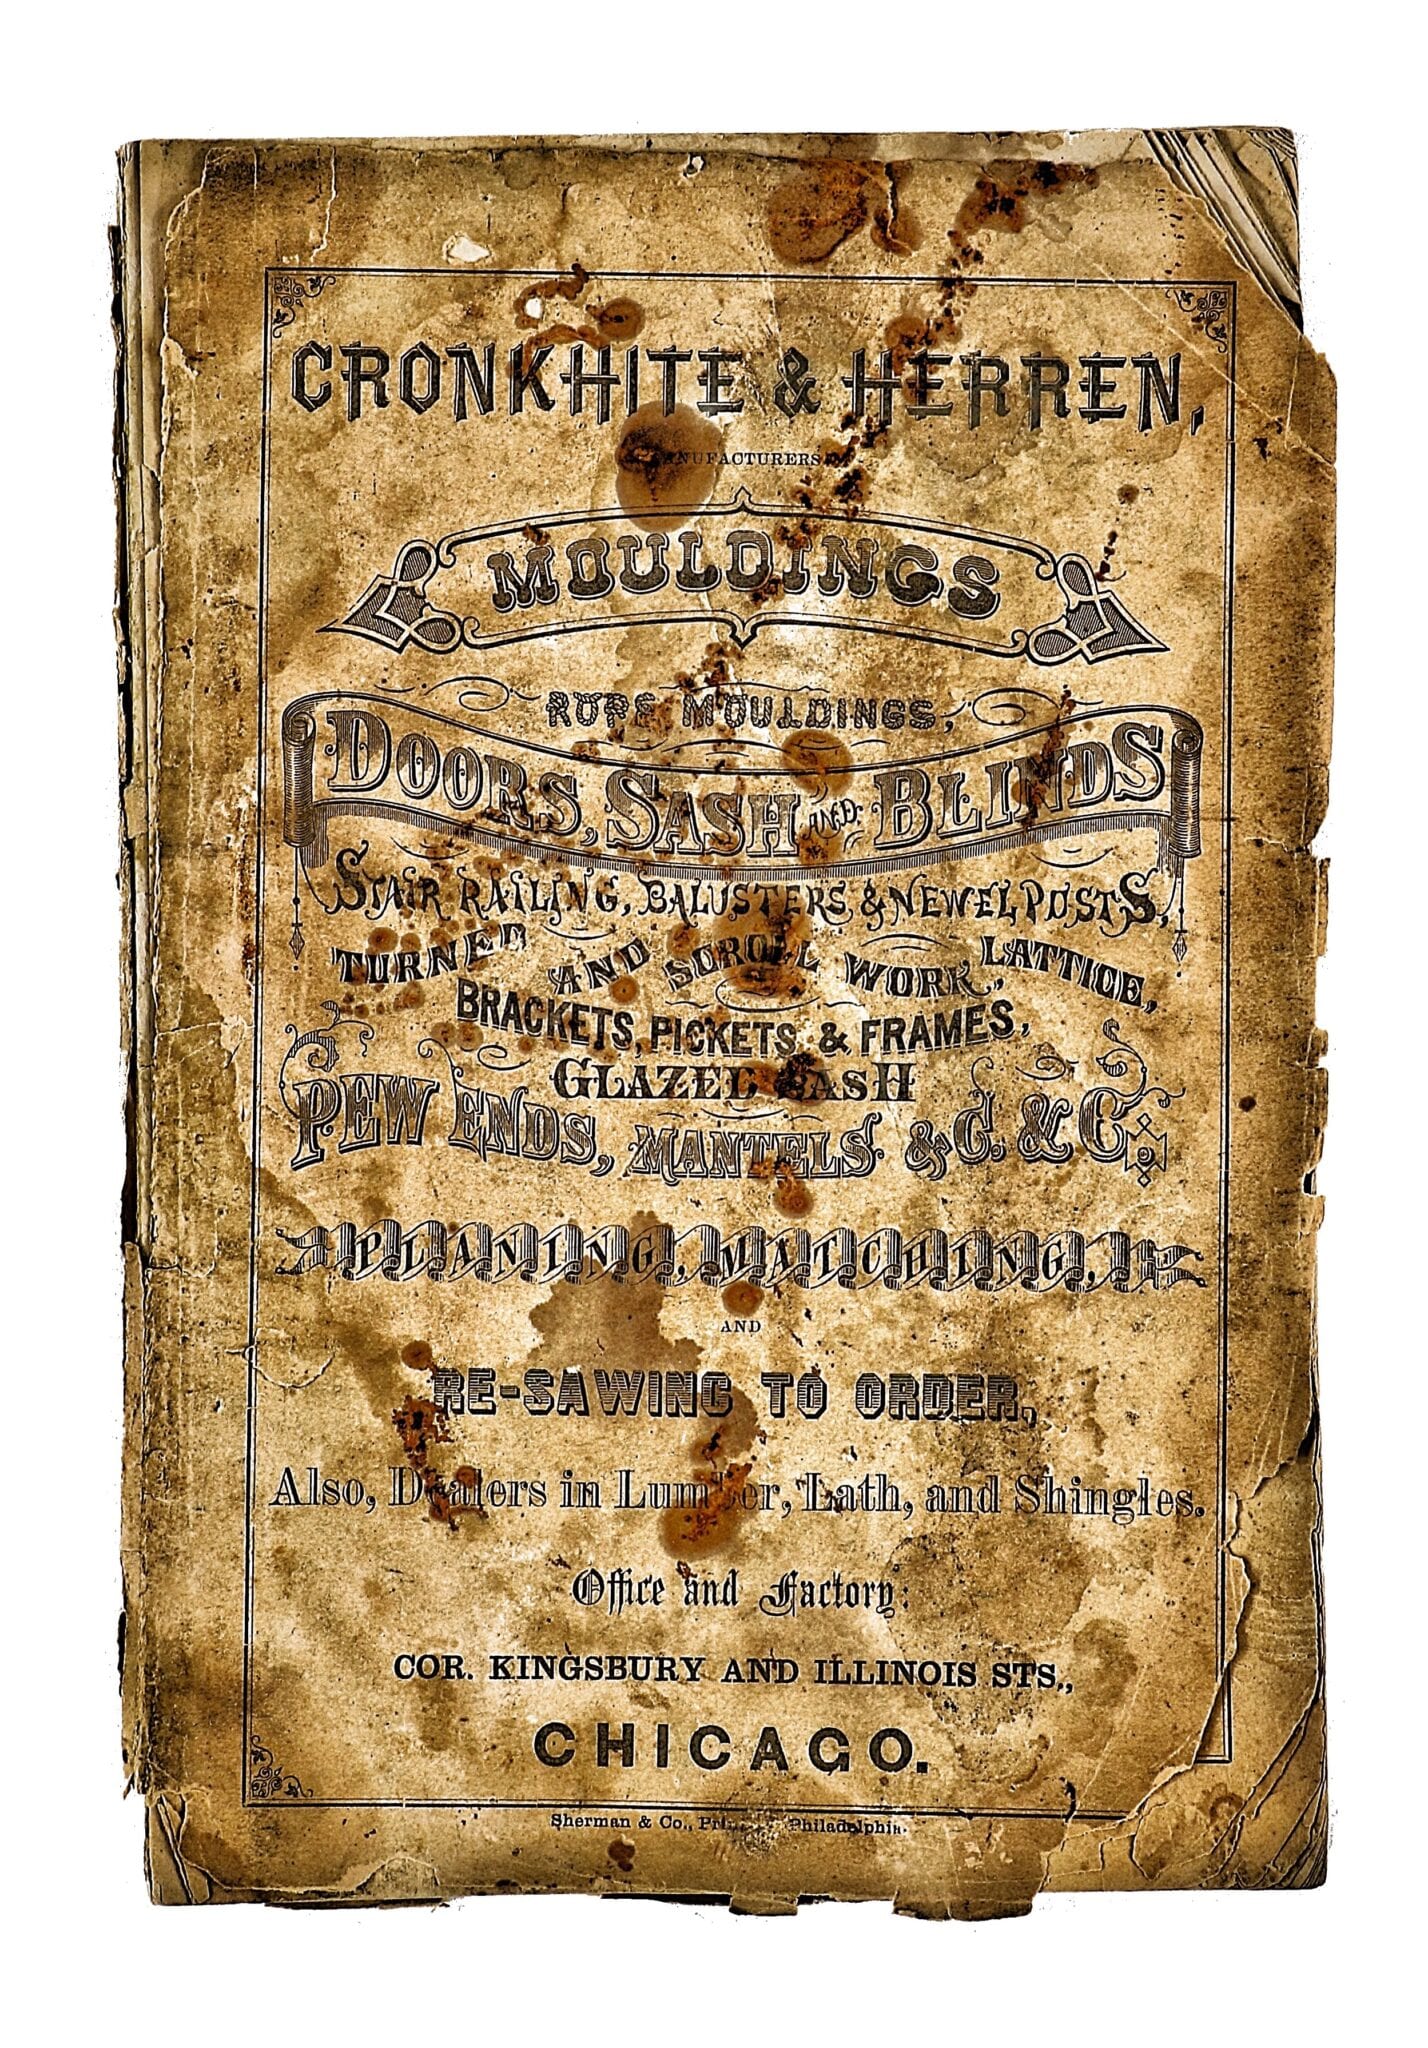 CRONKHITE & HERREN,
MANUFACTURERS OF
MOULDINGS
ROPE MOULDINGS,
DOORS, SASH AND BLINDS
STAIR RAILING, BALUSTERS & NEWEL POSTS,
TURNED AND SCROLL WORK, LATTICE,
BRACKETS, PICKETS & FRAMES,
GLAZED SASH
PEW ENDS, MANTELS &C. &C.
PLANING, MATCHING,
AND
RE-SAWING TO ORDER,
Also, Dealers in Lumber, Lath, and Shingles.
Office and Factory:
COR. KINGSBURY AND ILLINOIS STS.,
CHICAGO.
Sherman & Co., Philadelphia.